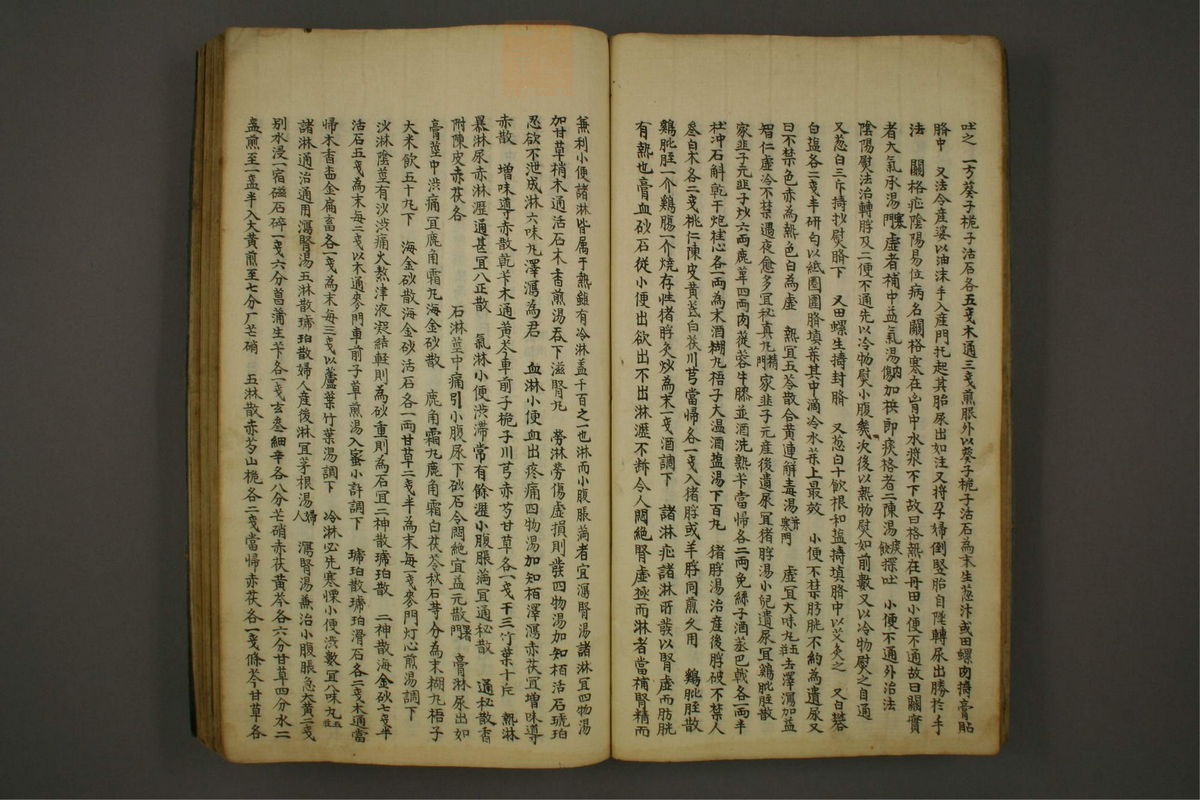 吐之 一方葵子梔子活石各五戔木通三戔煎服外以葵子梔子活石為末生葱汁或田螺肉擣膏貼
臍中 又法令産婆以油沫手入産門托起其胎尿出如注又将孕婦倒竪胎自陞轉尿出勝於手
法 關格疟陰陽易位病名關格寒在胷中水漿不下故曰格熱在丹田小便不通故曰關實
者大氣承湯門寒虛者補中益氣湯內加梹即痰格者二陳湯痰飲探吐 小便不通外治法
陰陽熨法治轉脬及二便不通先以冷物熨小腹幾次後以熱物熨如前數又以冷物熨之自通
又葱白三斤擣抄熨臍下 又田螺生擣封臍 又葱白十飲根和塩擣填臍中以艾灸之 又白礬
白塩各二戔半研匀以紙圈圍臍填藥其中滴冷水藥上最效 小便不禁肪胱不約為遺尿又
曰不禁色赤為熱色白為虛 熱宜五苓散合黄連解毒湯寒門 虛宜大味丸去澤瀉加益
智仁虛冷不禁遇夜愈多宜秘真丸精門家韭子元産後遺尿宜猪脬湯小兒遺尿宜鷄肶胵散
家韭子元韭子炒六兩鹿茸四兩肉蓯蓉牛膝並酒洗熟卞當帰各二兩免絲子酒蒸巴戟各一兩半
杜沖石斛乾干炮桂心各一兩為末酒糊丸梧子大温酒塩湯下百丸 猪脬湯治産後脬破不禁人
叅白朮各二戔桃仁陳皮黄芪白茯川芎當帰各一戔入猪脬或羊脬同煎久用 鷄肶胵散
鷄肶胵一介鷄膓一介燒存性猪脬灸炒為末一戔酒調下 諸淋疟諸淋所裝以腎虛而肪胱
有熱也膏血砂石從小便出欲出不出淋瀝不断令人悶絶腎虛極而淋者當補腎精而
兼利小便諸淋皆属于熱雖有冷淋盖千百之一也淋而小腹脹満者宜瀉腎湯諸淋宜四物湯
加甘草梢木通活石木香煎湯吞下滋腎丸 勞淋勞傷虛損則裝四物湯加知栢活石琥珀
忍欲不泄成淋六味丸澤瀉為君 血淋小便血出疼痛四物湯加知栢澤瀉赤茯宜増味導
赤散 増味導赤散乾卞木通黄芩車前子梔子川芎赤芍甘草各一戔干三竹葉十斥 熱淋
暴淋尿赤淋瀝通甚宜八正散 氣淋小便渋滞常有餘瀝小腹脹満宜通秘散 通秘散香
附陳皮赤茯各 石淋莖中痛引小腹尿下砂石令悶絶宜益元散門暑 膏淋尿出如
膏莖中渋痛宜鹿角霜丸海金砂散 鹿角霜丸鹿角霜白茯苓秋石等分為末糊丸梧子
大米飲五十丸下 海金砂散海金砂活石各一兩甘草一戔半為末每一戔麥門灯心煎湯調下
沙淋陰莖有沙渋痛火熬津液凝結軽則為砂重則為石宜二神散琥珀散 二神散海金砂七戔半
活石五戔為末每二戔以木通麥門車前子草煎湯入蜜小許調下 琥珀散琥珀滑石各二戔木通當
帰木香金扁畜各一戔為末每三戔以蘆葉竹葉湯調下 冷淋必先寒慄小便渋數宜八味丸
諸淋通治通用瀉腎湯五淋散琥珀散婦人産後淋宜茅根湯婦人 瀉腎湯兼治小腹脹急大黄二戔
別水浸一宿磁石碎一戔六分菖蒲生卞各一戔玄叅細辛各八分芒硝赤茯黄芩各六分甘草四分水二
盞煎至一盞半入大黄煎至七分厂芒硝 五淋散赤芍山梔各二戔當帰赤茯各一戔條芩甘草各